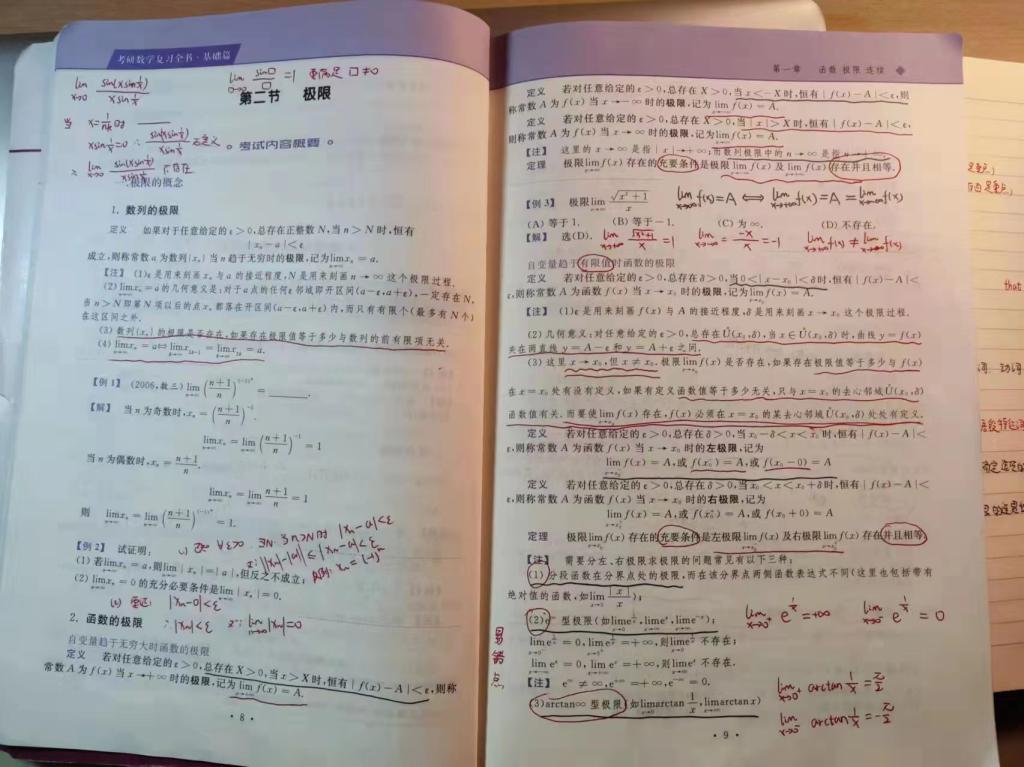 考研数学复习全书·基础篇
lim x→0 sin(x sin 1/x) / (x sin 1/x)
lim □→0 sin□/□ = 1 要满足 □≠0
第二节 极限
当 x=1/nπ时
x sin 1/x=0 ∴ sin(x sin 1/x)/(x sin 1/x) 无定义
∴ lim x→0 sin(x sin 1/x)/(x sin 1/x) 不存在
考试内容概要
极限的概念
1. 数列的极限
定义 如果对于任意给定的 ε>0,总存在正整数 N,当 n>N 时,恒有
|xₙ-a|<ε
成立,则称常数 a 为数列{xₙ}当 n 趋于无穷时的极限,记为 lim n→∞ xₙ = a.
【注】 (1)ε 是用来刻画 xₙ 与 a 的接近程度,N 是用来刻画 n→∞ 这个极限过程.
(2) lim n→∞ xₙ=a 的几何意义是:对于 a 点的任何 ε 邻域即开区间(a-ε,a+ε),一定存在 N,
当 n>N 即第 N 项以后的点 xₙ 都落在开区间(a-ε,a+ε)内,而只有有限个(最多有 N 个)
在这区间之外.
(3) 数列{xₙ}的极限是否存在,如果存在极限值等于多少与数列的前有限项无关.
(4) lim n→∞ xₙ = a ⇔ lim k→∞ x₂ₖ₋₁ = lim k→∞ x₂ₖ = a.
【例1】 (2006,数三) lim n→∞ ((n+1)/n)^((-1)^n) = ______.
【解】 当 n 为奇数时,xₙ = ((n+1)/n)^(-1),
lim n→∞ xₙ = lim n→∞ ((n+1)/n)^(-1) = 1
当 n 为偶数时,xₙ = (n+1)/n,
lim n→∞ xₙ = lim n→∞ (n+1)/n = 1
则 lim n→∞ xₙ = lim n→∞ ((n+1)/n)^((-1)^n) = 1.
【例2】 试证明:
∀ε>0 ∃N 当n>N时 |xₙ-a|<ε
(1) 若 lim n→∞ xₙ = a,则 lim n→∞ |xₙ| = |a|,但反之不成立;
||xₙ|-|a||≤|xₙ-a|<ε
反例: xₙ=(-1)ⁿ
(2) lim n→∞ xₙ = 0 的充分必要条件是 lim n→∞ |xₙ| = 0.
|xₙ-0|<ε
2. 函数的极限
∴ |xₙ|<ε ∴ lim n→∞ |xₙ|=0
自变量趋于无穷大时函数的极限
定义 若对任意给定的 ε>0,总存在 X>0,当 x>X 时,恒有|f(x)-A|<ε,则称
常数 A 为 f(x) 当 x→+∞ 时的极限,记为 lim x→+∞ f(x) = A.
· 8 ·
第一章 函数 极限 连续
定义 若对任意给定的 ε>0,总存在 X>0,当 x<-X 时,恒有|f(x)-A|<ε,则
称常数 A 为 f(x) 当 x→-∞ 时的极限,记为 lim x→-∞ f(x) = A.
定义 若对任意给定的 ε>0,总存在 X>0,当|x|>X 时,恒有|f(x)-A|<ε,
则称常数 A 为 f(x) 当 x→∞ 时的极限,记为 lim x→∞ f(x) = A.
【注】 这里的 x→∞ 是指|x|→+∞;而数列极限中的 n→∞ 是指 n→+∞.
定理 极限 lim x→∞ f(x) 存在的充要条件是极限 lim x→-∞ f(x) 及 lim x→+∞ f(x) 存在并且相等.
【例3】 极限 lim x→∞ √(x²+1)/x
lim x→∞ f(x)=A ⟺ lim x→+∞ f(x)=A=lim x→-∞ f(x)
(A) 等于 1. (B) 等于 -1. (C) 为 ∞. (D) 不存在.
【解】 选(D).
lim x→+∞ √(x²+1)/x =1 lim x→-∞ = -x/x = -1 lim x→+∞ f(x) ≠ lim x→-∞ f(x)
自变量趋于有限值时函数的极限
定义 若对任意给定的 ε>0,总存在 δ>0,当 0<|x-x₀|<δ 时,恒有|f(x)-A|<
ε,则称常数 A 为函数 f(x) 当 x→x₀ 时的极限,记为 lim x→x₀ f(x) = A.
【注】 (1)ε 是用来刻画 f(x) 与 A 的接近程度,δ 是用来刻画 x→x₀ 这个极限过程.
(2) 几何意义:对任意给定的 ε>0,总存在 Ů(x₀,δ),当 x∈Ů(x₀,δ) 时,曲线 y=f(x)
夹在两直线 y=A-ε 和 y=A+ε 之间.
(3) 这里 x→x₀,但 x≠x₀. 极限 lim x→x₀ f(x) 是否存在,如果存在极限值等于多少与 f(x)
在 x=x₀ 处有没有定义,如果有定义函数值等于多少无关,只与 x=x₀ 的去心邻域 Ů(x₀,δ)
函数值有关. 而要使 lim x→x₀ f(x) 存在,f(x) 必须在 x=x₀ 的某去心邻域 Ů(x₀,δ) 处处有定义.
定义 若对任意给定的 ε>0,总存在 δ>0,当 x₀-δ<x<x₀ 时,恒有|f(x)-A|<
ε,则称常数 A 为函数 f(x) 当 x→x₀ 时的左极限,记为
lim x→x₀⁻ f(x) = A,或 f(x₀⁻) = A,或 f(x₀-0) = A
定义 若对任意给定的 ε>0,总存在 δ>0,当 x₀<x<x₀+δ 时,恒有|f(x)-A|<
ε,则称常数 A 为函数 f(x) 当 x→x₀ 时的右极限,记为
lim x→x₀⁺ f(x) = A,或 f(x₀⁺) = A,或 f(x₀+0) = A
定理 极限 lim x→x₀ f(x) 存在的充要条件是左极限 lim x→x₀⁻ f(x) 及右极限 lim x→x₀⁺ f(x) 存在并且相等.
【注】 需要分左、右极限求极限的问题常见有以下三种:
(1) 分段函数在分界点处的极限,而在该分界点两侧函数表达式不同(这里也包括带有
绝对值的函数,如 lim x→0 |x|/x);
(2) e^∞ 型极限(如 lim x→0 e^(1/x), lim x→∞ e^x, lim x→∞ e^(-x));
lim x→0⁺ e^(1/x) = +∞ lim x→0⁻ e^(1/x) = 0
lim x→0⁻ e^(1/x) = 0, lim x→0⁺ e^(1/x) = +∞, 则 lim x→0 e^(1/x) 不存在;
lim x→-∞ e^x = 0, lim x→+∞ e^x = +∞, 则 lim x→∞ e^x 不存在.
易错点
【注】 e^∞ ≠ ∞, e^(+∞) = +∞, e^(-∞) = 0.
(3) arctan∞ 型极限(如 lim x→0 arctan 1/x, lim x→∞ arctan x)
lim x→0⁺ arctan 1/x = π/2
lim x→0⁻ arctan 1/x = -π/2
· 9 ·
that